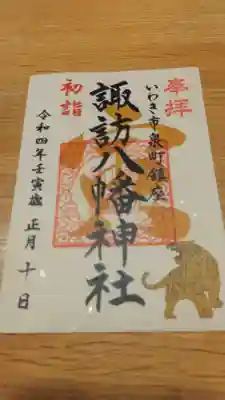 奉拝
いわき市泉町鎮座
諏訪八幡神社
初詣
令和四年壬寅歳 正月十日